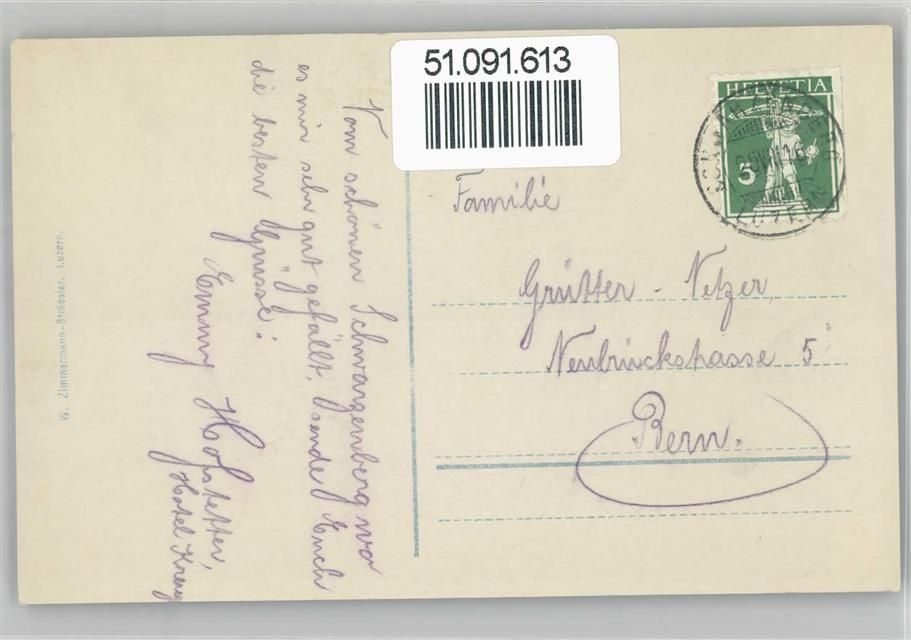 51.091.613
HELVETIA
5
LUZERN
Familie
Grütter - Netzer,
Neubrückstrasse 5
Bern.
Vom schönen Schwarzenberg wo
es mir sehr gut gefällt, sende Euch
die besten Grüsse!
Emmy Hofstetter,
Hotel Kreuz
W. Zimmermann-Strässler, Luzern.